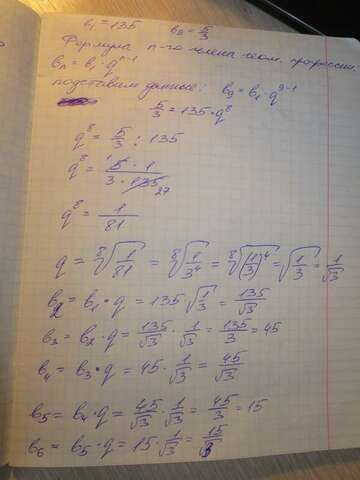 b₁ = 135 b₉ = 5/3
Формула n-го члена геом. прогрессии
bₙ = b₁ · qⁿ⁻¹
подставим данные: b₉ = b₁ · q⁹⁻¹
5/3 = 135 · q⁸
q⁸ = 5/3 : 135
q⁸ = ¹5 · 1 / 3 · 135 27
q⁸ = 1/81
q = ⁸√(1/81) = ⁸√(1/3⁴) = ⁸√((1/3)⁴) = √(1/3) = 1/√3
b₂ = b₁ · q = 135 √(1/3) = 135/√3
b₃ = b₂ · q = 135/√3 · 1/√3 = 135/3 = 45
b₄ = b₃ · q = 45 · 1/√3 = 45/√3
b₅ = b₄ · q = 45/√3 · 1/√3 = 45/3 = 15
b₆ = b₅ · q = 15 · 1/√3 = 15/√3